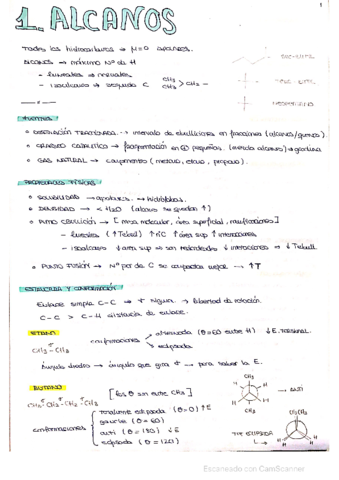 1
1. ALCANOS
Todos los hidrocarburos → μ=0 apolares.
ALCANOS → máximo Nº de H
- lineales → normales
- isoalcanos → segundo C CH3 CH3 > CH2 -
FUENTES
DESTILACIÓN FRACCIONADA → intervalo de ebulliciones en fracciones (alcanos/
CRAQUEO CATALÍTICO → fragmentación en pequeños. (método alcanos) → gasolina
GAS NATURAL → componentes (metano, etano, propano).
PROPIEDADES FÍSICAS
SOLUBILIDAD → apolares → hidrófobas.
DENSIDAD → < H2O (alcano se queda ↑)
PUNTO EBULLICIÓN → [masa molecular, área superficial, ramificaciones]
- lineales (↑Tebull) ↑nºC ↑ área sup ↑ interacciones
- isoalcanos ↓ área sup → son redondeados ↓ interacciones → ↓ Tebull.
PUNTO FUSIÓN → Nº par de C se empaqueta mejor → ↑T
ESTRUCTURA Y CONFORMACIÓN
Enlace simple C-C → σ → libertad de rotación.
C-C > C-H distancia de enlace.
ETANO
CH3 - CH3
conformaciones
alternada (θ=60 entre H) ↓ E. torsional.
eclipsada
Ángulo diedro → ángulo que gira σ → para saber la E.
BUTANO
[los θ son entre CH3]
CH3 - CH2 - CH2 - CH3
conformaciones
totalmente eclipsada (θ=0) ↑E
gauche (θ=60)
anti (θ=180) ↓E
eclipsada (θ=120)
ANTI
TOT. ECLIPSADA
Escaneado con CamScanner